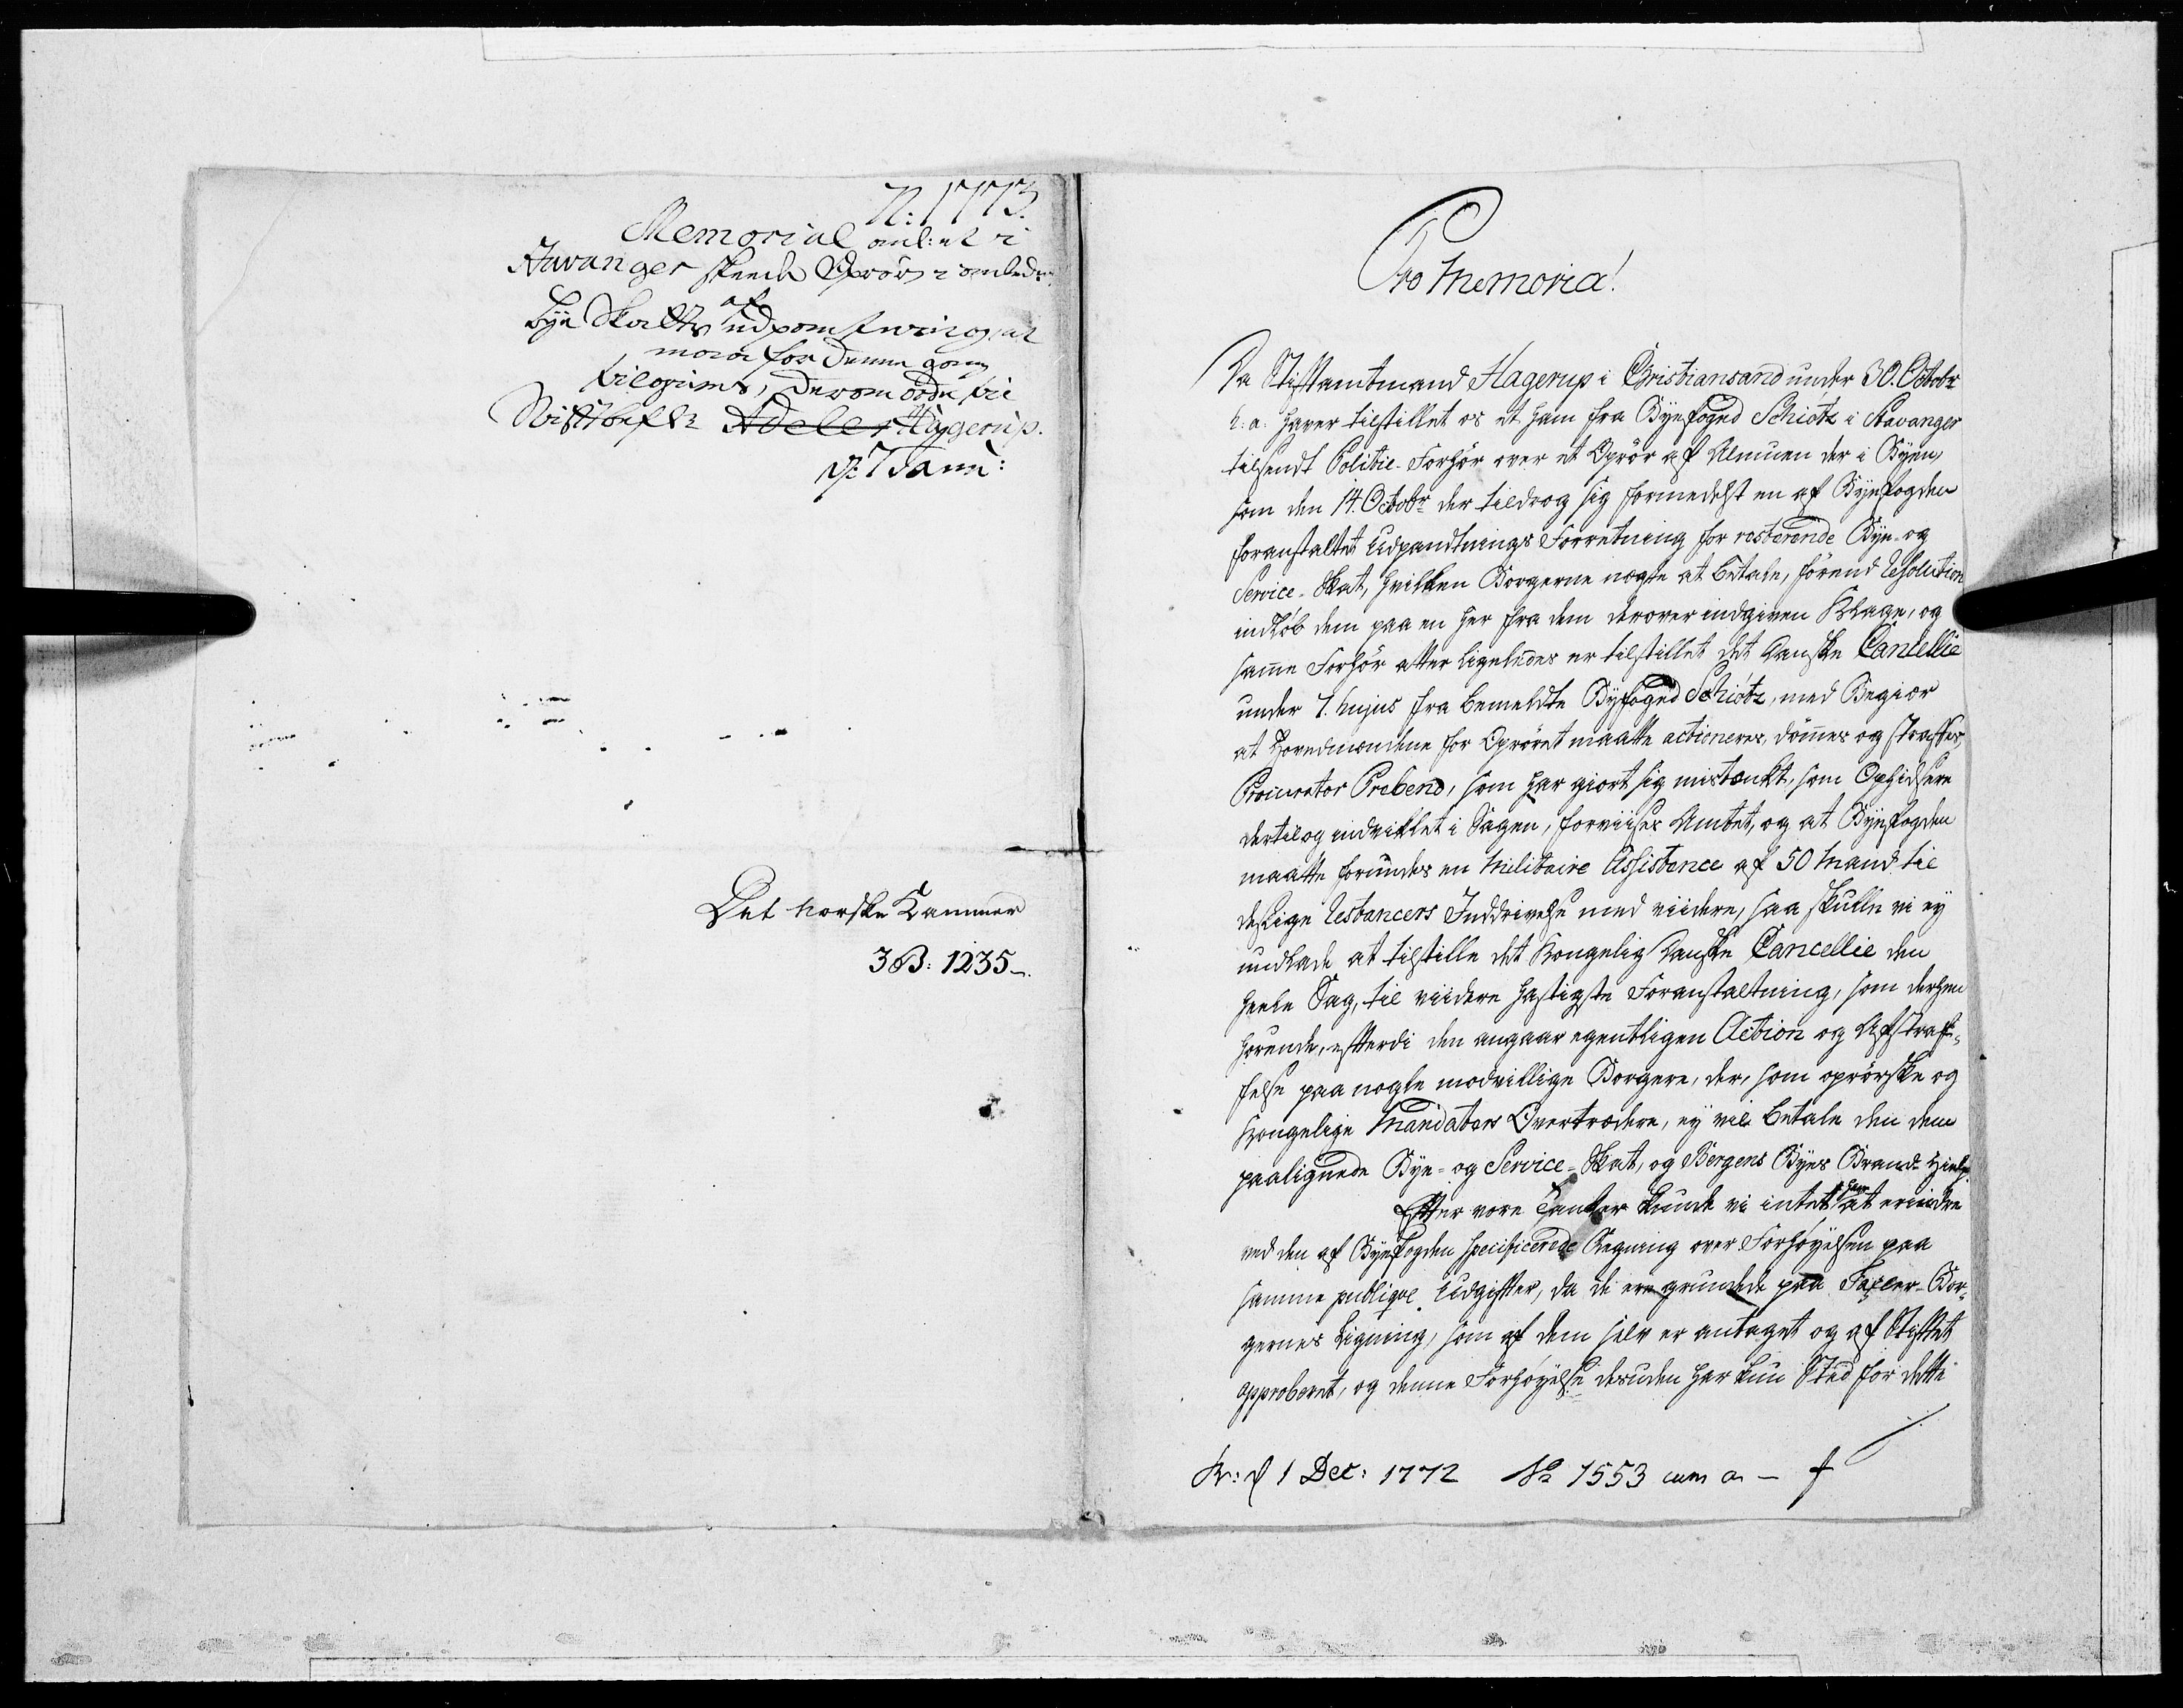 N: 1773.
Memorial anl: et i
Stavanger skeede Oprør i anledn:
af
Bye Skatts udpantning, at
maa for denne gang
tilgives, derom ordre til
Stiftbefh: Adeler Hagerup.
d: 7 Janu:
Det Norske Kammer
3 B: 1235
Pro Memoria!
Da Stiftamtmand Hagerup i Christiansand under 30. Octobr
h: a: haver tilstillet os et ham fra Byefoged Schiøtz i Stavanger
tilsendt Politie-Forhør over et Oprør af Almuen der i Byen,
som den 14. Octobr der tildrog sig formedelst en af Byefogden
foranstaltet Udpandtnings Forretning for resterende Bye- og
Service-Skat, hvilken Borgerne negte at betale, førend Resolution
indløb dem paa en her fra dem derover indgiven Klage, og
samme Forhør atter ligeledes er tilstillet det danske Cancellie
under 7. hujus fra bemeldte Byfoged Schiøtz, med Begiær
at Hovedmændene for Oprøret maatte actioneres, dømmes og straffes,
Procurator Prebend, som har giort sig mistænkt, som Ophidsere
dertil og indviklet i Sagen, forviises Amtet, og at Byefogden
maatte forundes en Militaire Assistence af 50 Mand til
deslige Restancers Inddrivelse med viidere, saa skulle vi ey
undlade at tilstille det Kongelig Danske Cancellie den
heele Sag, til viidere hastigste Foranstaltning, som derhen
hørende, efterdi den angaar egentligen Action og Afstraf-
felse paa nogle modvillige Borgere, der, som oprørske og
Kongelige Mandaters Overtrædere, ey vil betale den dem
paalignede Bye- og Service-Skat, og Bergens Byes Brand-Hielp.
Efter vore Tanker kunde vi intet have at erindre
ved den af Byefogden specificerede Regning over Forhøyelsen paa
samme publiqve Udgifter, da de ere grundede paa Taxeer-Bor-
gernes Ligning, som af dem selv er antaget og af Stiftet
approberet, og denne Forhøyelse desuden har kun Sted for dette
Kr: d 1 Dec: 1772 No 1553 cum a — f